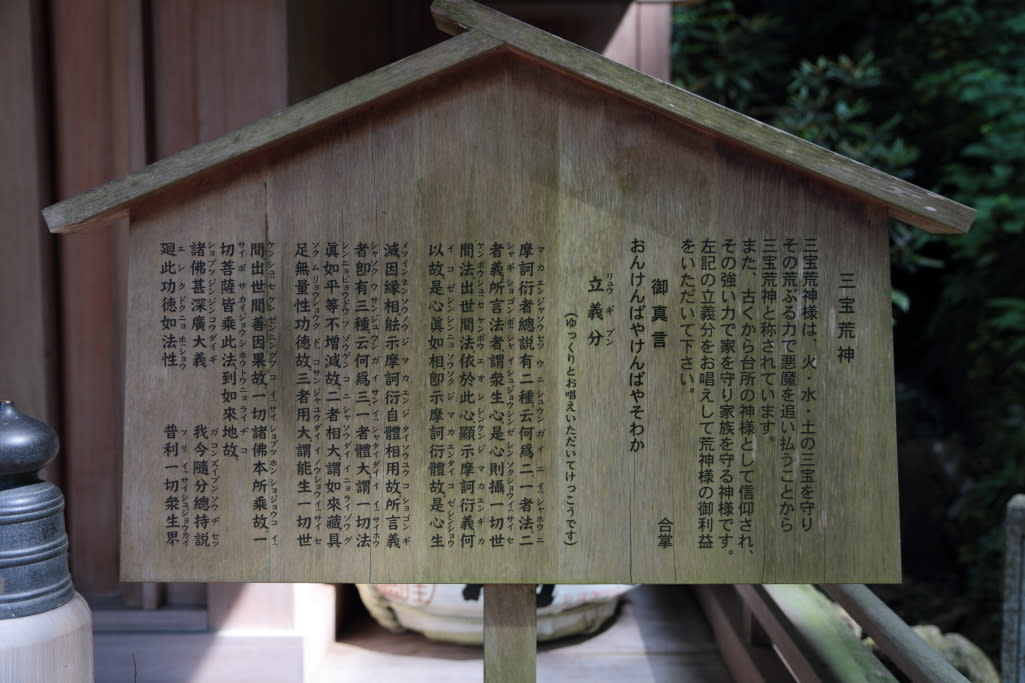 三宝荒神
三宝荒神様は、火・水・土の三宝を守り
その荒ぶる力で悪魔を追い払うことから
三宝荒神と称されています。
また、古くから台所の神様として信仰され、
その強い力で家を守り家族を守る神様です。
左記の立義分をお唱えして荒神様の御利益
をいただいて下さい。
合掌
御真言
おんけんばやけんばやそわか
立義分
リュウギブン
(ゆっくりとお唱えいただいてけっこうです)
摩訶衍者總説有二種云何爲二一者法二
者義所言法者謂衆生心是心則攝一切世
間法出世間法依於此心顯示摩訶衍義何
以故是心眞如相卽示摩訶衍體故是心生
滅因縁相能示摩訶衍自體相用故所言義
者卽有三種云何爲三一者體大謂一切法
眞如平等不増減故二者相大謂如來藏具
足無量性功徳故、三者用大謂能生一切世
間出世間善因果故、一切諸佛本所乘故一
切菩薩皆乘此法到如來地故、
諸佛甚深廣大義　我今隨分總持説
廻此功徳如法性　普利一切衆生界